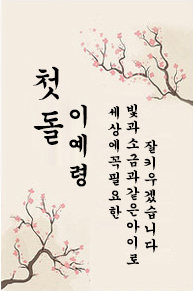 첫돌
이예령
세상에꼭필요한
빛과소금과같은아이로
잘키우겠습니다